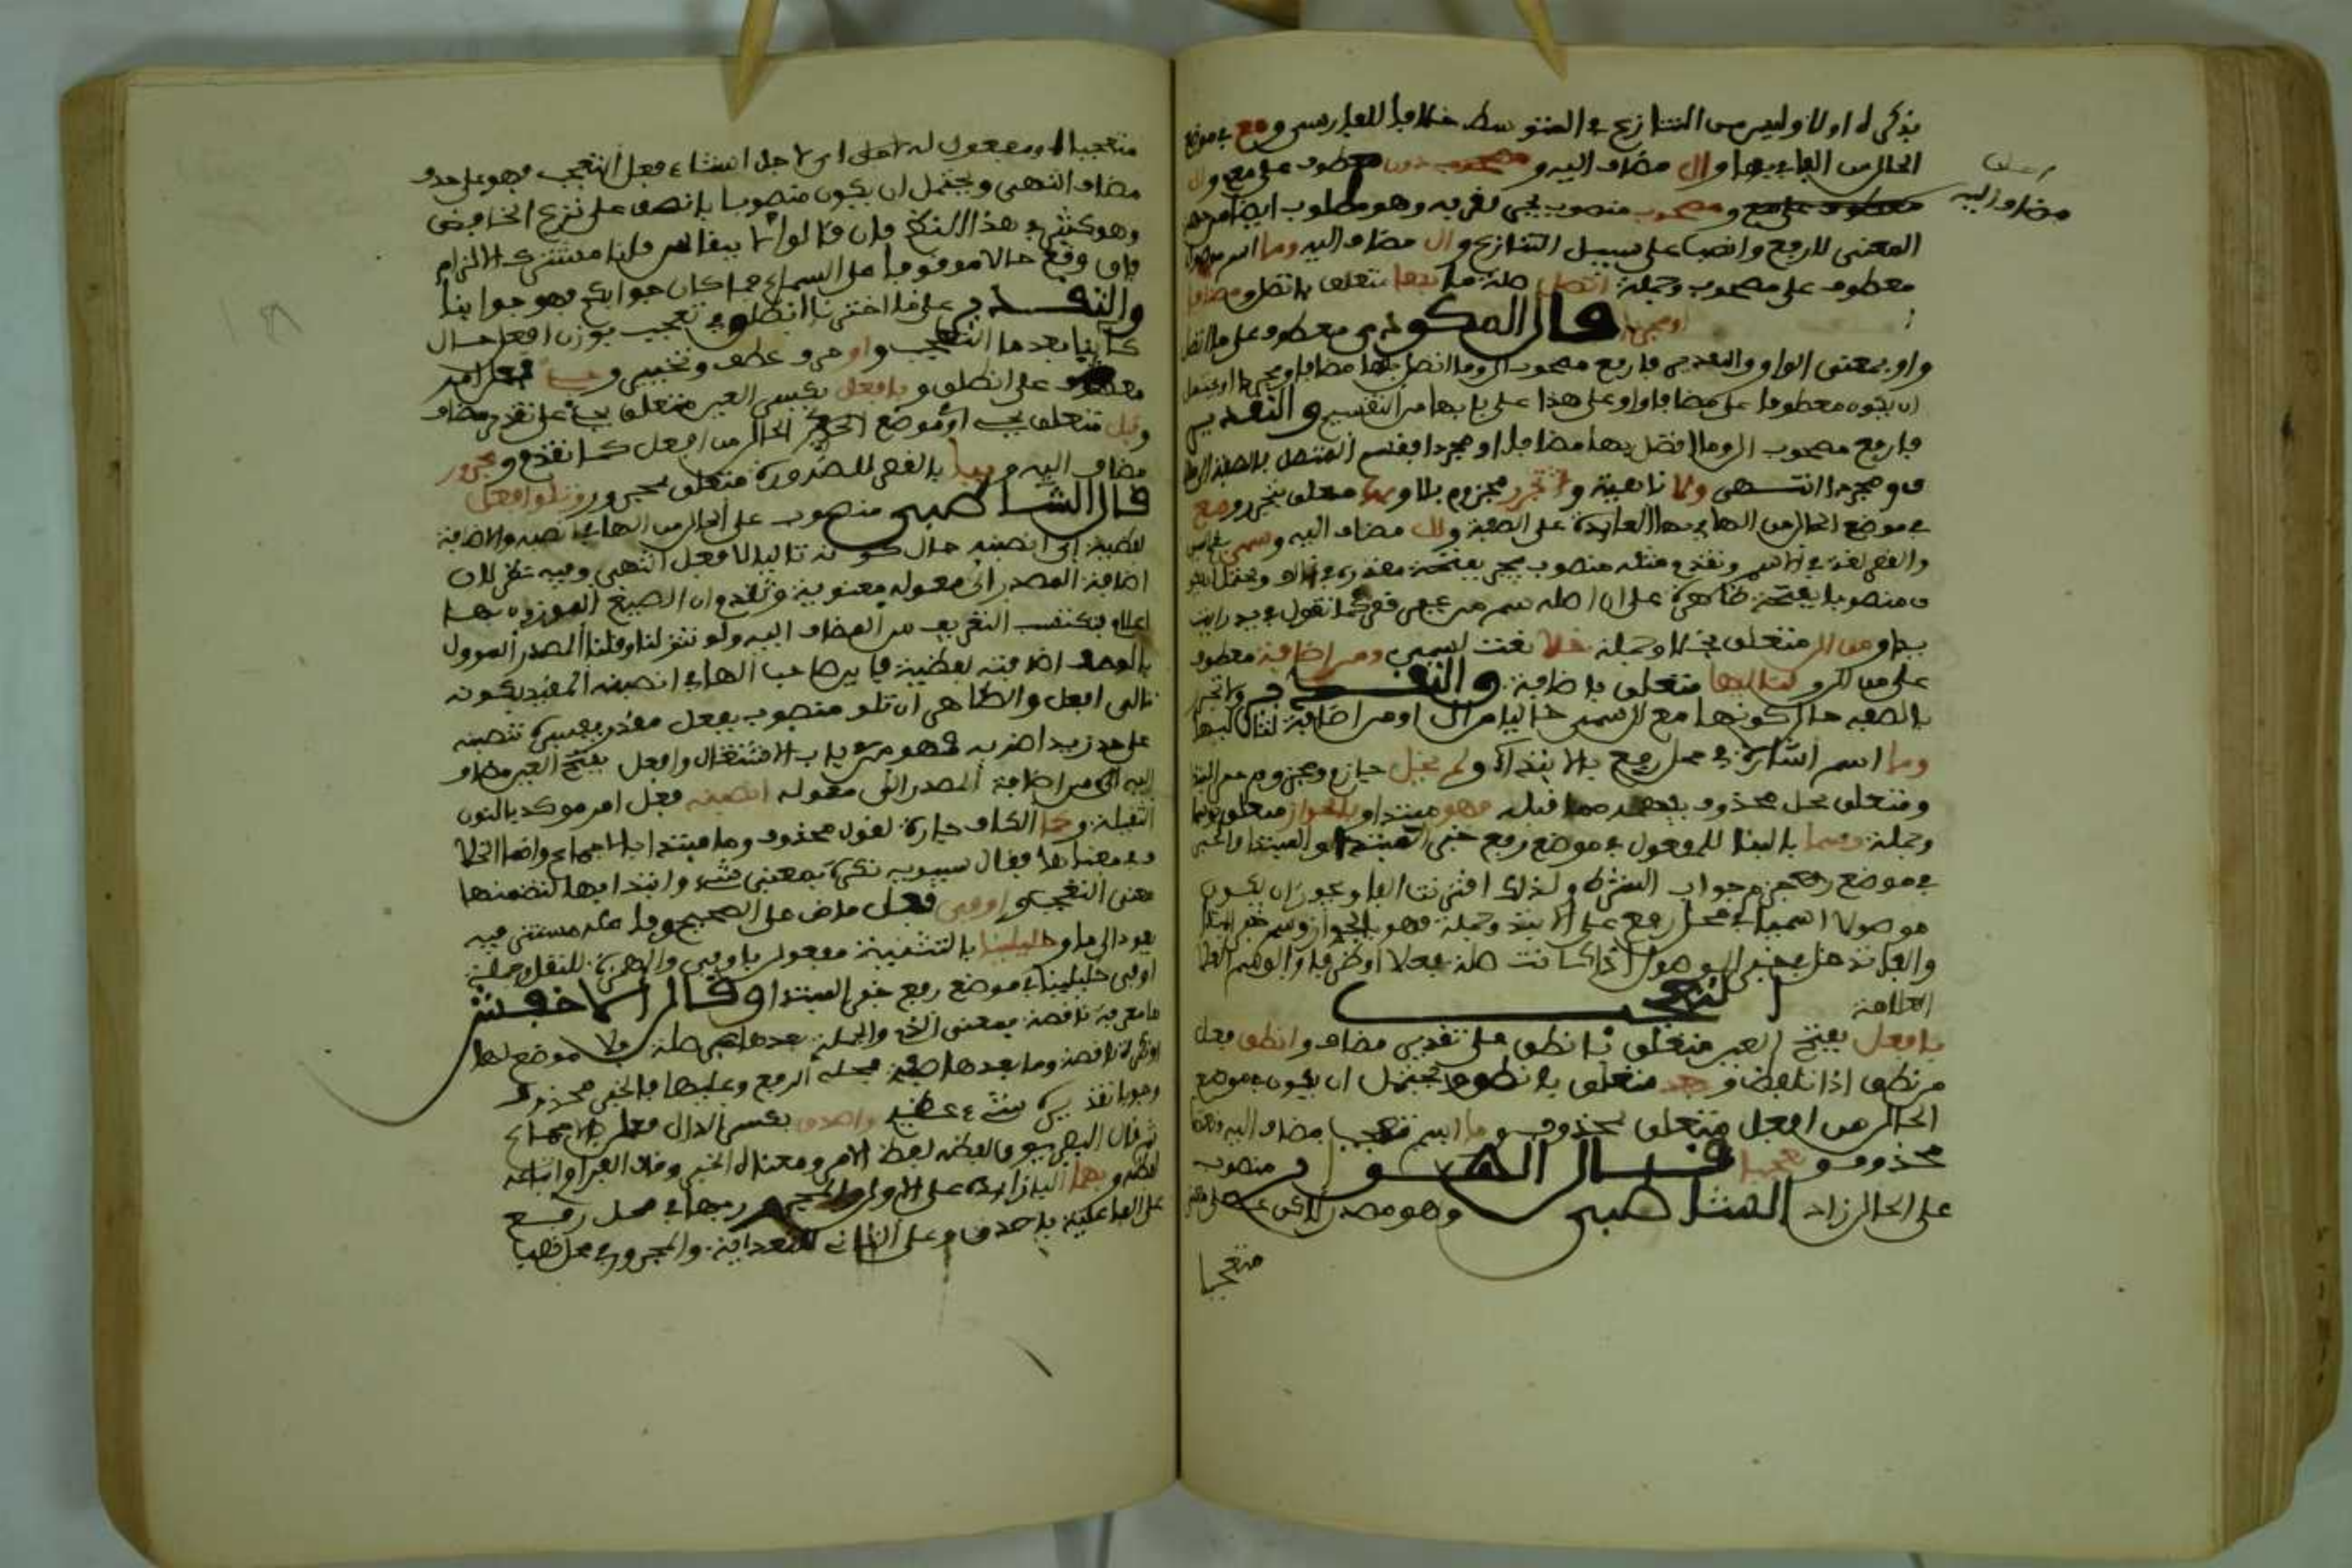 يذكر له اولا وليس من التنازع في المتوسط خلافا للفارسي ومع في موضع
الحال من الهاء في بها وال مضاف اليه ومصحوب دون معطوف على مع وال
مضاف اليه
معطوف على مع ومصحوب منصوب بجر لقربه وهو مطلوب ايضا من جهة
المعنى للرفع وانصبا على سبيل التنازع وال مضاف اليه وما اسم موصول
معطوف على مصحوب وجملة اتصل صلة ما بها متعلق باتصل ومضافا
او مجردا قال المكودي معطوف على ما اتصل
واو بمعنى الواو والتقدير فارفع مصحوب ال وما اتصل بها مضافا ومجردا او يحتمل
ان يكون معطوفا على مضافا واو على هذا على بابها من التقسيم والتقدير
فارفع مصحوب ال وما اتصل بها مضافا او مجردا فقسم المتصل بالصفة الى
ومجردا انتهى ولا ناهية وتجرر مجزوم بلا وبها متعلق بتجرر ومع
في موضع الحال من الهاء في بها العايدة على الصفة وال مضاف اليه وسمى
والقصر لغة في الاسم وتقدم مثله منصوب بجر بفتحة مقدرة في
منصوبا بفتحة ظاهرة على ان اصله سم من غير قصر كما تقول في يد رايت
يدا ومن ال متعلق بخلا وجملة خلا نعت لسمى ومن اضافة معطوف
على من ال ولتاليها متعلق باضافة والتقدير ولا تجرر
بالصفة حال كونها مع ال سمى خاليا من ال او من اضافة لتال لها
وما اسم اشارة في محل رفع بالابتداء ولم يخل جازم ومجزوم
ومتعلق يخل محذوف يفهم مما قبله فهو مبتدا وبالجواز متعلق بوسما
وجملة وسما بالبناء للمفعول في موضع رفع خبر المبتدا والمبتدا والخبر
في موضع جزم جواب الشرط ولذلك اقترنت بالفاء ويجوز ان يكون
موصولا اسميا في محل رفع على الابتداء وجملة فهو بالجواز وسم خبر المبتدا
والفاء تدخل في خبر الموصول اذا كانت صلته فعلا او ظرفا والوسم
العلامة التعجب
بافعل بفتح العين متعلق بانطق على تقدير مضاف وانطق فعل
من نطق اذا تلفظ وبعد متعلق بانطق ويحتمل ان يكون في موضع
الحال من افعل متعلق بمحذوف وما اسم تعجب مضاف اليه
محذوف وتعجبا قال الهواري منصوب
على الحال زاد الشاطبي وهو مصدر
متعجبا
متعجبا او مفعول له اي لاجل انشاء فعل التعجب فهو على حذف
مضاف انتهى ويحتمل ان يكون منصوبا بانطق على نزع الخافض
وهو كثير في هذا النظم فان قالوا لا ينقاس قلنا مشترك الالزام
فان وقع حالا موقوفا على السماع فما كان جوابكم فهو جوابنا
والتقدير على ما اخترنا انطق في تعجب بوزن افعل حال
كاينا بعد ما التعجب واو حرف عطف وتخيير وجيء فعل امر
معطوف على انطق وبافعل بكسر العين متعلق بجيء على تقدير مضاف
وقبل متعلق بجيء او في موضع الحال من افعل كما تقدم ومجرور
مضاف اليه وببا بالقصر للضرورة متعلق بمجرور وتلو افعل
قال الشاطبي منصوب على الحال من الهاء في انصبنه والاضافة
لفظية اي انصبنه حال كونه تاليا لافعل انتهى وفيه نظر لان
اضافة المصدر الى معموله معنوية وتقدم ان الصيغ الموزون بها
اعلام فيكتسب التعريف من المضاف اليه ولو تنزلنا وقلنا المصدر المؤول
بالوصف اضافته لفظية فاين صاحبا الهاء في انصبنه المفيد بكونه
تالي افعل والظاهر ان تلو منصوب بفعل مقدر يفسره انصبنه
على حد زيدا اضربه فهو من باب الاشتغال وافعل بفتح العين مضاف
اليه من اضافة المصدر الى معموله انصبنه فعل امر موكد بالنون
الثقيلة وكما الكاف جارة لقول محذوف وما مبتدا باجماع وانما الخلاف
في معناها فقال سيبويه نكرة بمعنى شيء وابتدا بها لتضمنها
معنى التعجب واوفى فعل ماض على الصحيح وفاعله مستتر فيه
يعود الى ما وخليلينا بالتثنية مفعول باوفى والهمزة للنقل وجملة
اوفى خليلينا في موضع رفع خبر المبتدا وقال الاخفش
ما معرفة ناقصة بمعنى الذي والجملة بعدها صلة ولا موضع لها
او نكرة ناقصة وما بعدها صفة محله الرفع وعليها فالخبر محذوف
وجوبا تقديره شيء عظيم واصدق بكسر الدال فعل بالاجماع
ثم قال البصريون لفظه لفظ الامر ومعناه الخبر وقال الفرا واتباعه
لفظه وبهما الباء زايدة على الاول والمجرور بها في محل رفع
على الفاعلية باصدق وعلى الثاني للتعدية والمجرور في محل نصب